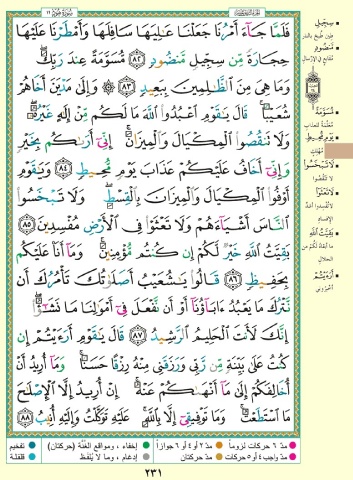 فَلَمَّا جَآءَ أَمْرُنَا جَعَلْنَا عَٰلِيَهَا سَافِلَهَا وَأَمْطَرْنَا عَلَيْهَا
حِجَارَةً مِّن سِجِّيلٍ مَّنضُودٍ ﴿٨٢﴾ مُّسَوَّمَةً عِندَ رَبِّكَ ۖ
وَمَا هِىَ مِنَ ٱلظَّٰلِمِينَ بِبَعِيدٍ ﴿٨٣﴾ ۞ وَإِلَىٰ مَدْيَنَ أَخَاهُمْ
شُعَيْبًا ۚ قَالَ يَٰقَوْمِ ٱعْبُدُوا۟ ٱللَّهَ مَا لَكُم مِّنْ إِلَٰهٍ غَيْرُهُۥ ۖ
وَلَا تَنقُصُوا۟ ٱلْمِكْيَالَ وَٱلْمِيزَانَ ۚ إِنِّىٓ أَرَىٰكُم بِخَيْرٍ
وَإِنِّىٓ أَخَافُ عَلَيْكُمْ عَذَابَ يَوْمٍ مُّحِيطٍ ﴿٨٤﴾ وَيَٰقَوْمِ
أَوْفُوا۟ ٱلْمِكْيَالَ وَٱلْمِيزَانَ بِٱلْقِسْطِ ۖ وَلَا تَبْخَسُوا۟
ٱلنَّاسَ أَشْيَآءَهُمْ وَلَا تَعْثَوْا۟ فِى ٱلْأَرْضِ مُفْسِدِينَ ﴿٨٥﴾
بَقِيَّتُ ٱللَّهِ خَيْرٌ لَّكُمْ إِن كُنتُم مُّؤْمِنِينَ ۚ وَمَآ أَنَا۠ عَلَيْكُم
بِحَفِيظٍ ﴿٨٦﴾ قَالُوا۟ يَٰشُعَيْبُ أَصَلَوٰتُكَ تَأْمُرُكَ أَن
نَّتْرُكَ مَا يَعْبُدُ ءَابَآؤُنَآ أَوْ أَن نَّفْعَلَ فِىٓ أَمْوَٰلِنَا مَا نَشَٰٓؤُا۟ ۖ
إِنَّكَ لَأَنتَ ٱلْحَلِيمُ ٱلرَّشِيدُ ﴿٨٧﴾ قَالَ يَٰقَوْمِ أَرَءَيْتُمْ إِن
كُنتُ عَلَىٰ بَيِّنَةٍ مِّن رَّبِّى وَرَزَقَنِى مِنْهُ رِزْقًا حَسَنًا ۚ وَمَآ أُرِيدُ أَنْ
أُخَالِفَكُمْ إِلَىٰ مَآ أَنْهَىٰكُمْ عَنْهُ ۚ إِنْ أُرِيدُ إِلَّا ٱلْإِصْلَٰحَ
مَا ٱسْتَطَعْتُ ۚ وَمَا تَوْفِيقِىٓ إِلَّا بِٱللَّهِ ۚ عَلَيْهِ تَوَكَّلْتُ وَإِلَيْهِ أُنِيبُ ﴿٨٨﴾
سِجِّيلٍ
مَّنضُودٍ
مُّسَوَّمَةً
يَوْمٍ مُّحِيطٍ
مُهلك
لَا تَبْخَسُوا
لا تنقصوا
لَا تَعْثَوْا
بَقِيَّتُ اللَّهِ
أَرَءَيْتُمْ
أخبروني
مدّ ٦ حركات لزوماً
مدّ ٢ أو ٤ أو ٦ جوازاً
إخفاء، ومواقع الغُنَّة (حركتان)
تفخيم
مدّ واجب ٤ أو ٥ حركات
مدّ حركتان
إدغام، وما لا يُلفَظ
قلقلة
٢٣١